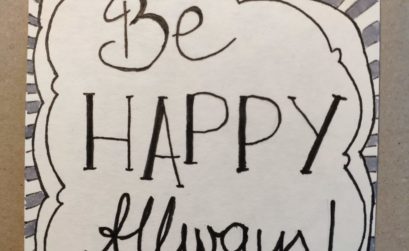 Be
HAPPY
Allways!